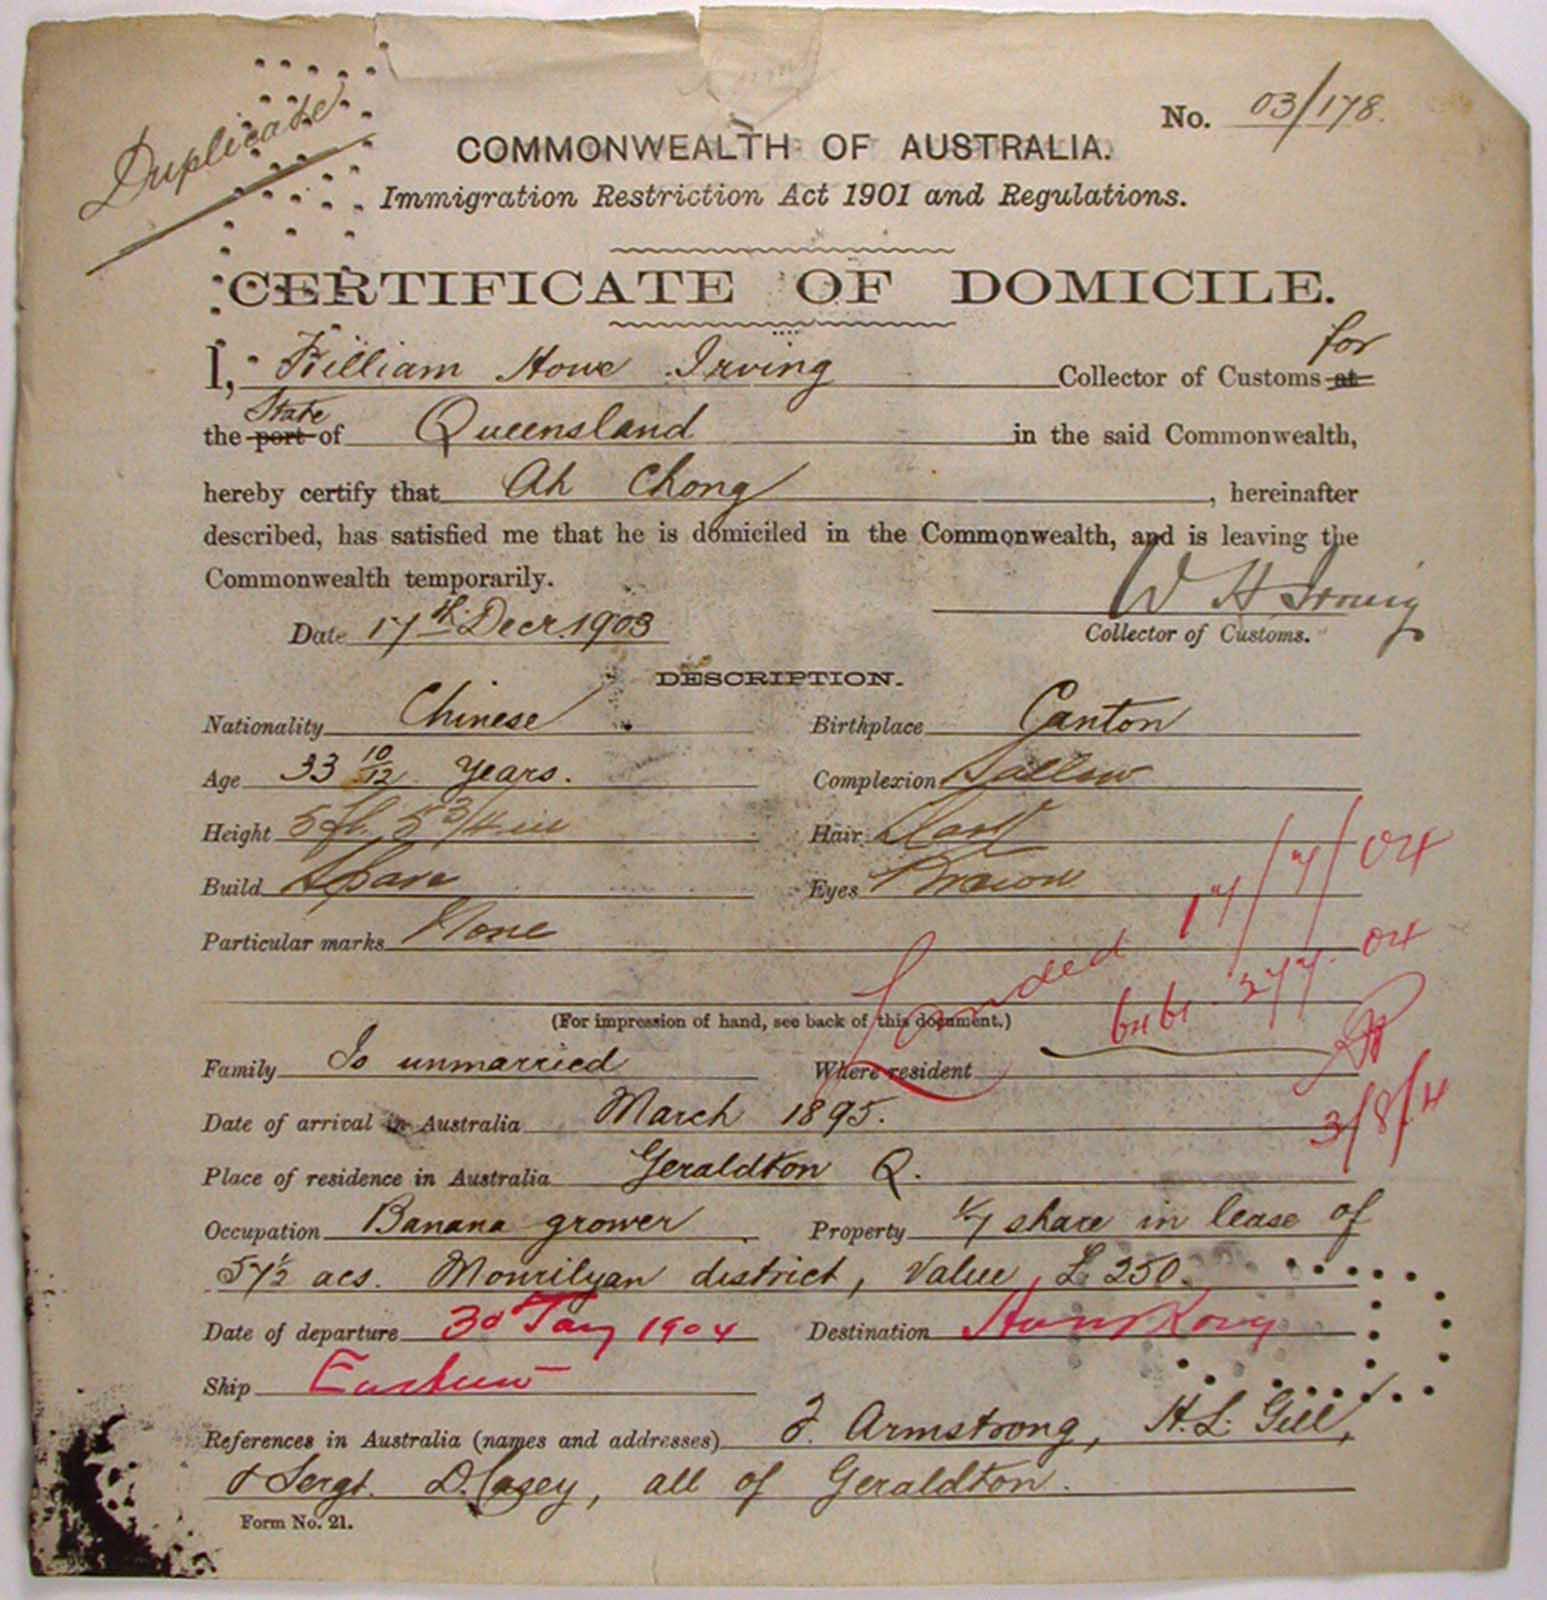 Duplicate
No. 03/178.
COMMONWEALTH OF AUSTRALIA.
Immigration Restriction Act 1901 and Regulations.
CERTIFICATE OF DOMICILE.
I, William Howe Irving Collector of Customs at for
the port State of Queensland in the said Commonwealth,
hereby certify that Ah Chong, hereinafter
described, has satisfied me that he is domiciled in the Commonwealth, and is leaving the
Commonwealth temporarily.
W H Irving
Date 17th Decr. 1903
Collector of Customs.
DESCRIPTION.
Nationality Chinese Birthplace Canton
Age 33 10/12 years. Complexion Sallow
Height 5 ft 5 3/4 in Hair Dark
Build Spare Eyes Brown
Particular marks None
Landed 17/7/04
04
(For impression of hand, see back of this document.)
Family Is unmarried Where resident
3/8/4
Date of arrival in Australia March 1895.
Place of residence in Australia Geraldton Q.
Occupation Banana grower Property 1/7 share in lease of
57½ acs. Mourilyan district, Value £250.
Date of departure 30 Jany 1904 Destination Hong Kong
Ship Eastern
References in Australia (names and addresses) J. Armstrong, H.L. Gill,
& Sergt. D. Casey, all of Geraldton.
Form No. 21.